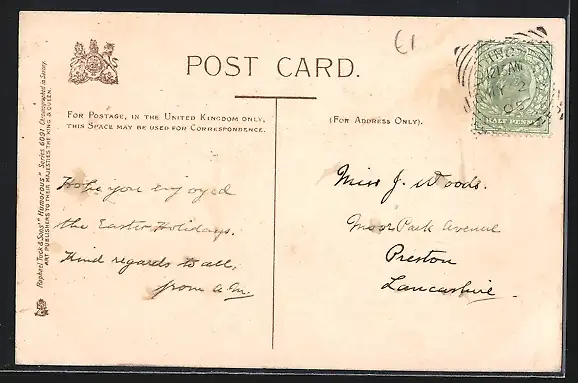 £1
POST CARD.
FOR POSTAGE, IN THE UNITED KINGDOM ONLY,
THIS SPACE MAY BE USED FOR CORRESPONDENCE.
(FOR ADDRESS ONLY).
Raphael Tuck & Sons' "Humorous" Series 6091 Chromographed in Saxony.
ART PUBLISHERS TO THEIR MAJESTIES THE KING & QUEEN.
Hope you enjoyed
the Easter Holidays.
Kind regards to all,
from a.m.
Miss J. Woods.
Moor Park Avenue
Preston
Lancashire.
12 AM
MY 2
05
HALF PENNY